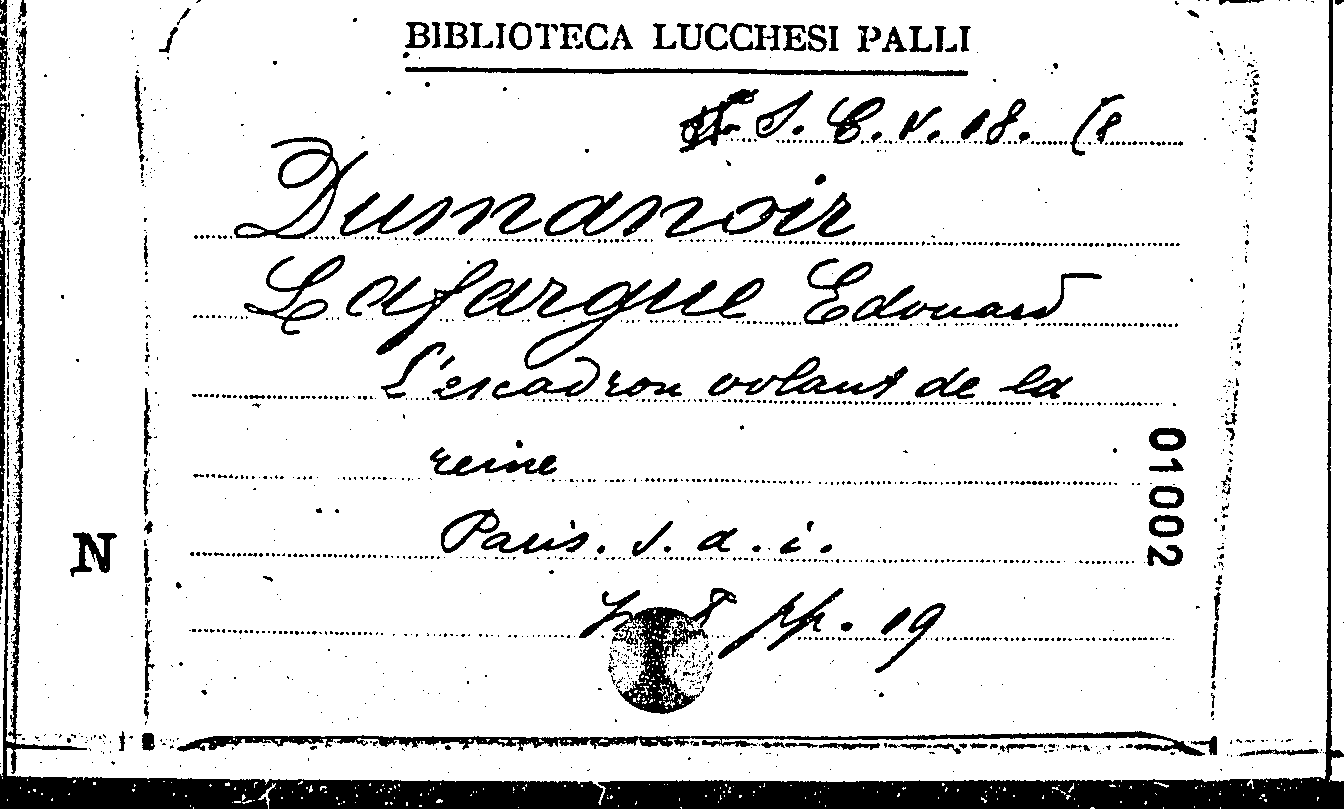 BIBLIOTECA LUCCHESI PALLI
S. C. V. 18. (8
Dumanoir
Lafargue Edouard
L'escadron volant de la
reine
01002
N
Paris. s. d. i.
8 pp. 19